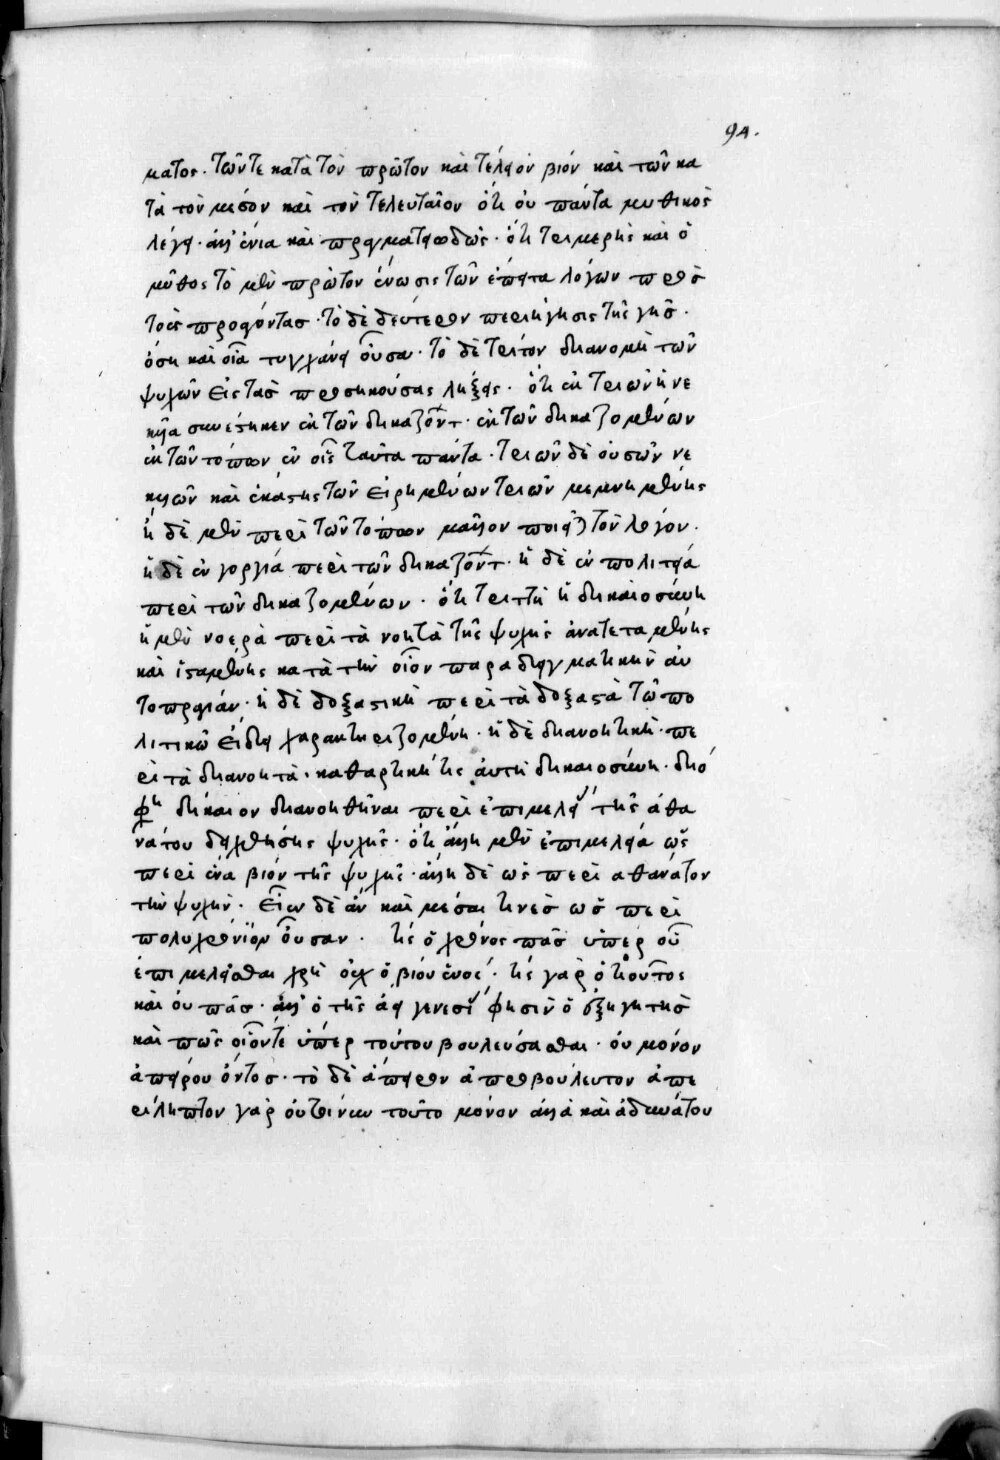 94.
ματος. τῶν τε κατὰ τὸν πρῶτον καὶ τέλειον βίον καὶ τῶν κα
τὰ τὸν μέσον καὶ τὸν τελευταῖον ὅτι οὐ πάντα μυθικὸς
λέγει. ἀλλ' ἔνια καὶ πραγματειωδῶς. ὅτι τριμερὴς καὶ ὁ
μῦθος τὸ μὲν πρῶτον ἕνωσις τῶν ἔπειτα λόγων πρὸς
τοὺς προϊόντας. τὸ δὲ δεύτερον περιήγησις τῆς γῆς.
ὅση καὶ οἵα τυγχάνει οὖσα. τὸ δὲ τρίτον διανομὴ τῶν
ψυχῶν εἰς τὰς προσηκούσας λήξεις. ὅτι ἐκ τριῶν ἡ νε
κυῖα συνέστηκεν ἐκ τῶν δικαζόντ. ἐκ τῶν δικαζομένων
ἐκ τῶν τόπων ἐν οἷς ταῦτα πάντα. τριῶν δὲ οὐσῶν νε
κυιῶν καὶ ἑκάστης τῶν εἰρημένων τριῶν μεμνημένης
ἡ δὲ μὲν περὶ τῶν τόπων μᾶλλον ποιεῖται τὸν λόγον.
ἡ δὲ ἐν γοργίᾳ περὶ τῶν δικαζόντ. ἡ δὲ ἐν πολιτείᾳ
περὶ τῶν δικαζομένων. ὅτι τριττὴ ἡ δικαιοσύνη
ἡ μὲν νοερὰ περὶ τὰ νοητὰ τῆς ψυχῆς ἀνατεταμένης
καὶ ἱσταμένης κατὰ τὴν οἷον παραδειγματικὴν αὐ
τοπραγίαν. ἡ δὲ δοξαστικὴ περὶ τὰ δοξαστὰ τῷ πο
λιτικῷ εἴδει χαρακτηριζομένη. ἡ δὲ διανοητικὴ. πε
ρὶ τὰ διανοητὰ. καθαρτικὴ τις αὐτὴ δικαιοσύνη. διό
φη δίκαιον διανοηθῆναι περὶ ἐπιμελεί τῆς ἀθα
νάτου δειχθείσης ψυχῆς. ὅτι ἄλλη μὲν ἐπιμέλεια ὡς
περὶ ἕνα βίον τῆς ψυχῆς. ἄλλη δὲ ὡς περὶ ἀθάνατον
τὴν ψυχὴν. εἶεν δὲ ἂν καὶ μέσαι τινὲς ὡς περὶ
πολυχρόνιον οὖσαν. τίς ὁ χρόνος πᾶς ὑπὲρ οὗ
ἐπιμελεῖσθαι χρὴ οὐχ ὁ βίου ἑνός. τίς γὰρ ὁ τοιοῦτος
καὶ οὐ πᾶς. ἀλλ' ὁ τῆς ἀεὶ γενεσί φησὶν ὁ ἐξηγητὴς
καὶ πῶς οἷόν τε ὑπὲρ τούτου βουλεύσασθαι. οὐ μόνον
ἀπείρου ὄντος. τὸ δὲ ἄπειρον ἀπροβούλευτον ἀπε
ρίληπτον γὰρ τοῦτο μόνον ἀλλὰ καὶ ἀδυνάτου